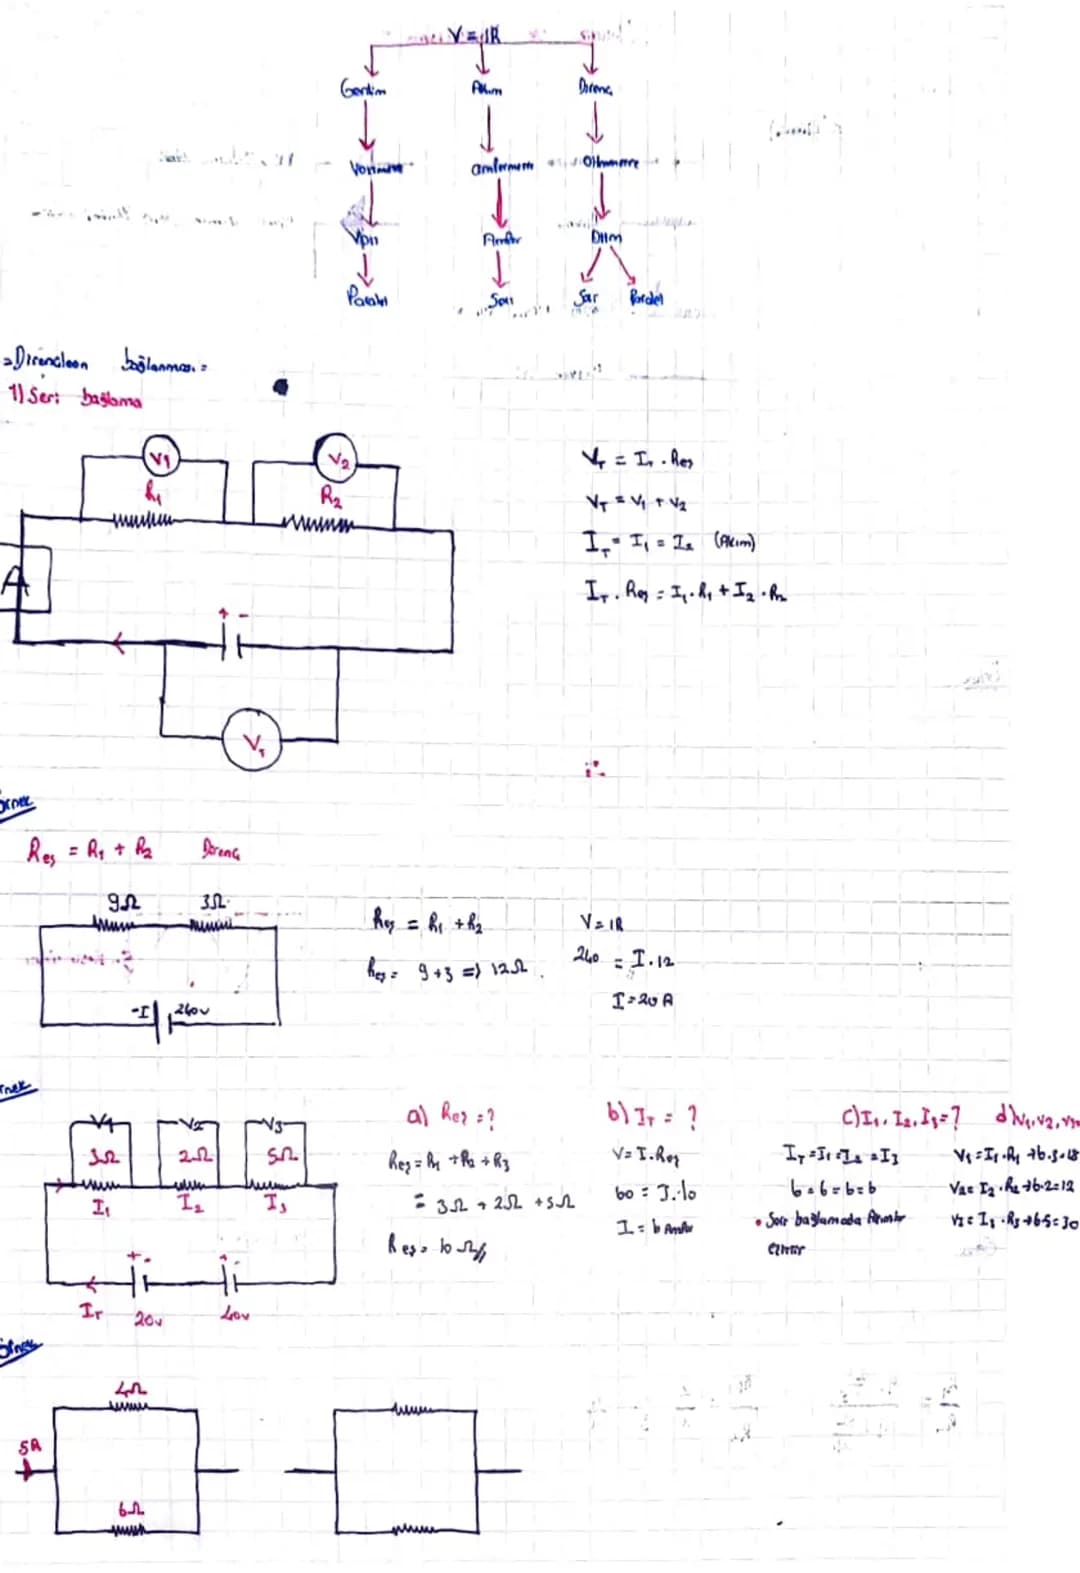 V = IR
Gerilim Akım Direnç
Voltmetre ampermetre Ohmmetre
Volt Amper Ohm
Paralel Seri Seri Paralel
Dirençlerin bağlanması:
1) Seri bağlama
V1 V2
R1 R2
A
+ -
VT
VT = IT . Reş
VT = V1 + V2
IT = I1 = I2 (Akım)
IT . Reş = I1 . R1 + I2 . R2
Örnek
Reş = R1 + R2 Direnç
9Ω 3Ω
240v
Reş = R1 + R2
Reş = 9+3 => 12Ω
V = IR
240 = I.12
I = 20 A
Örnek
V1 V2 V3
3Ω 2Ω 5Ω
I1 I2 I3
+ -
IT 20v 40v
a) Reş = ?
Reş = R1 + R2 + R3
= 3Ω + 2Ω + 5Ω
Reş = 10 Ω//
b) IT = ?
V = I.Reş
60 = I.10
I = 6 Amper
c) I1, I2, I3 = ?
IT = I1 = I2 = I3
6 = 6 = 6 = 6
• Seri bağlamada Akımlar
d) V1, V2, V3
V1 = I1 . R1 → 6.3 = 18
V2 = I2 . R2 → 6.2 = 12
V3 = I3 . R3 → 6.5 = 30
Örnek
4Ω
5A
6Ω